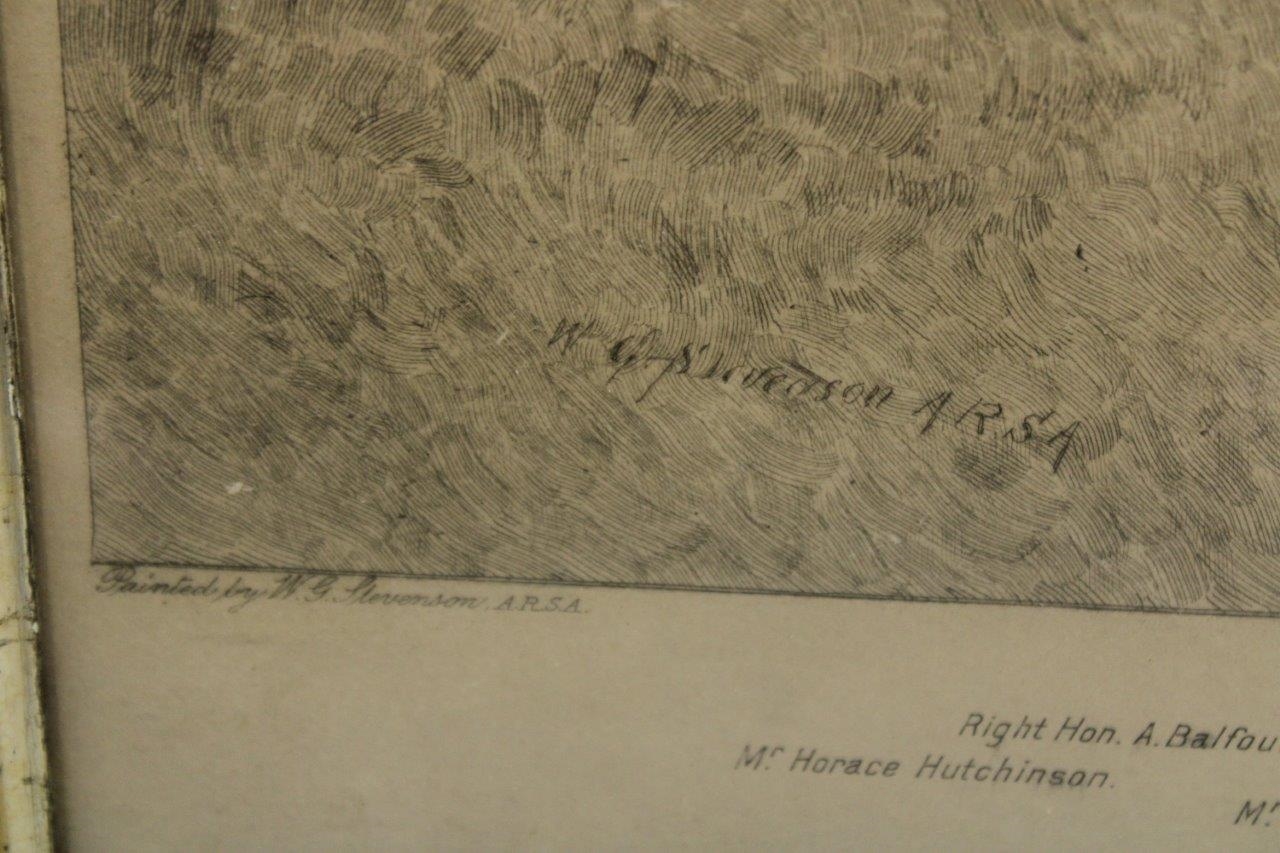 W G Stevenson A.R.S.A
Painted by W. G. Stevenson, A.R.S.A.
Right Hon. A. Balfou
Mr Horace Hutchinson.
Mr